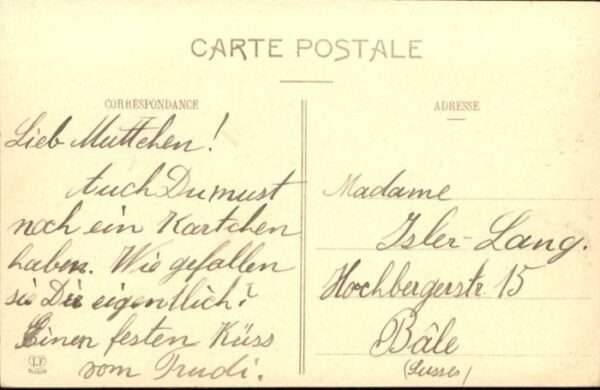 CARTE POSTALE
CORRESPONDANCE
ADRESSE
Lieb Muttchen!
Auch Du must
noch ein Kartchen
haben. Wie gefallen
sie Dir eigentlich?
Einen festen Kuss
vom Trudi.
Madame
Isler-Lang.
Hochbergerstr. 15
Bâle
(Suisse)